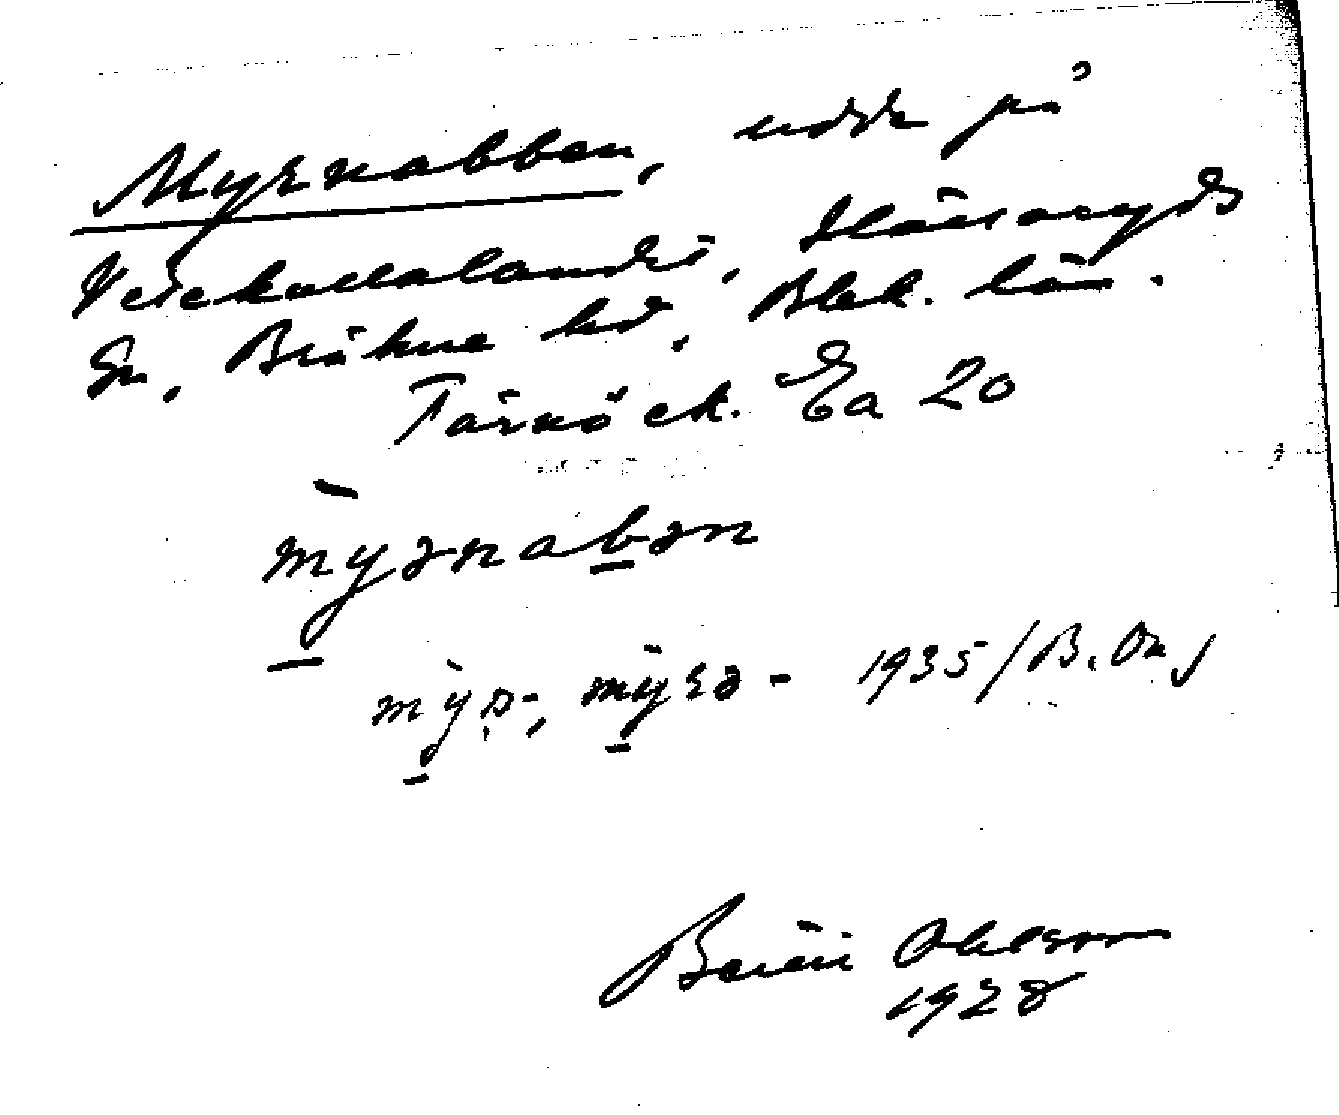 Myrnabben, udde på
Veickullalandet, Hällaryds
Sn, Bräkne hd, Blek. län.
Tärnö ek. Ea 20
myənabən
myr-, myrə- 1935/B. On
Bertil Ohlsson
1928